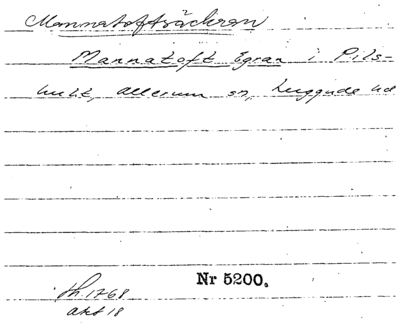 Mannatoftsäckran
Mannatoft Egran i Pils=
hult, Allerum sn, Luggude hd
Nr 5200.
th. 1768
akt 18